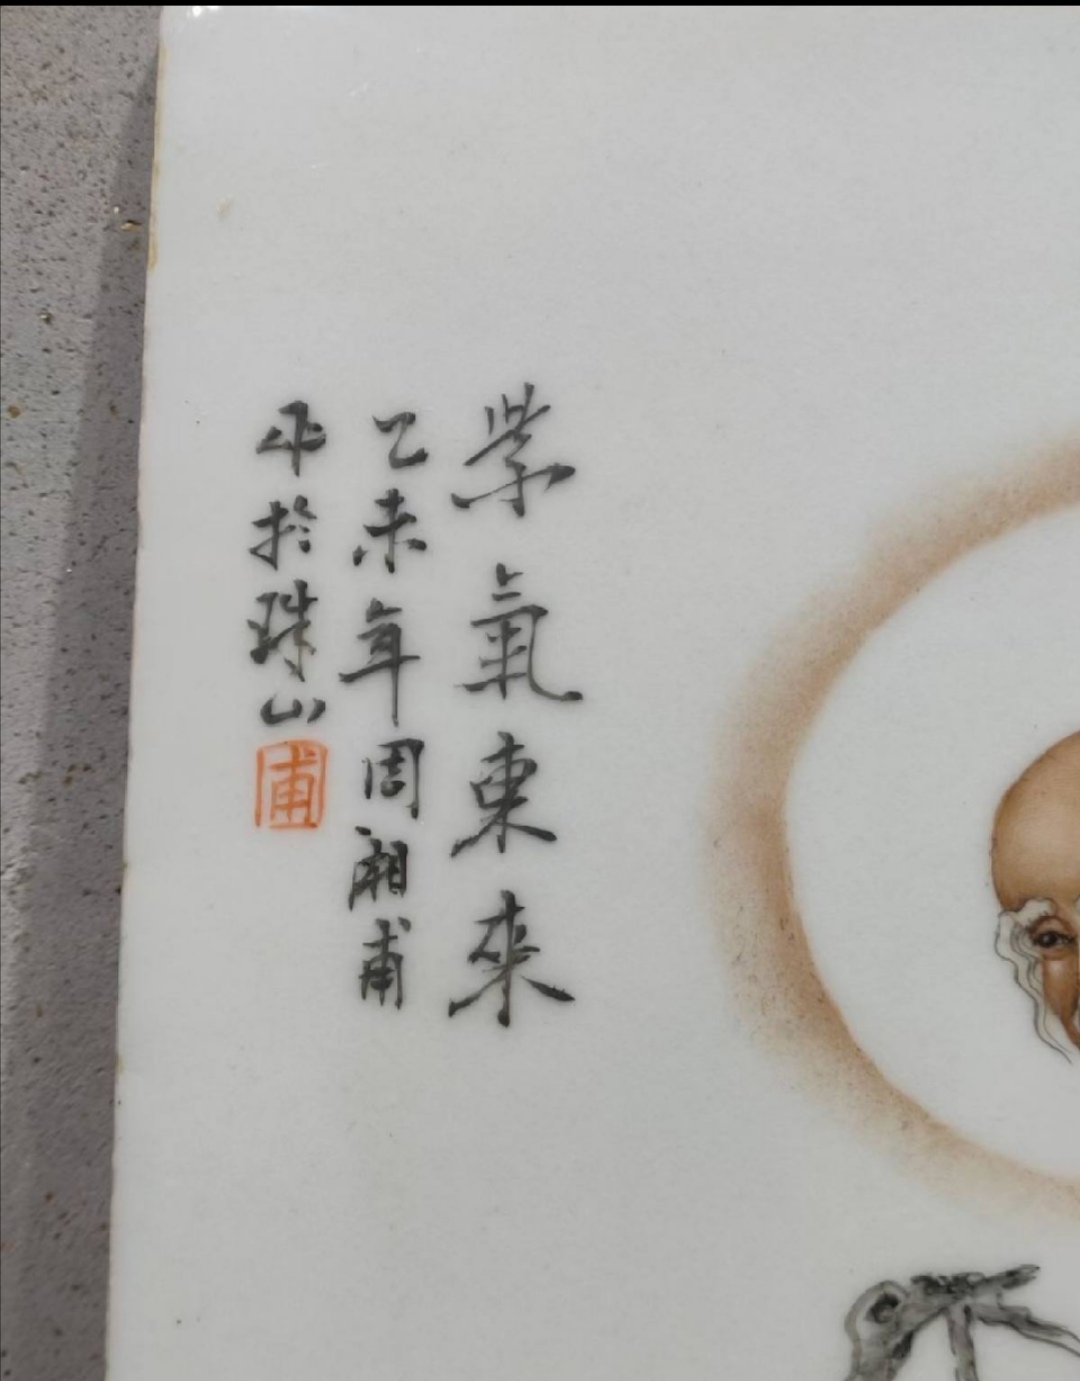 紫氣東來
乙未年周湘甫
作於珠山
甫